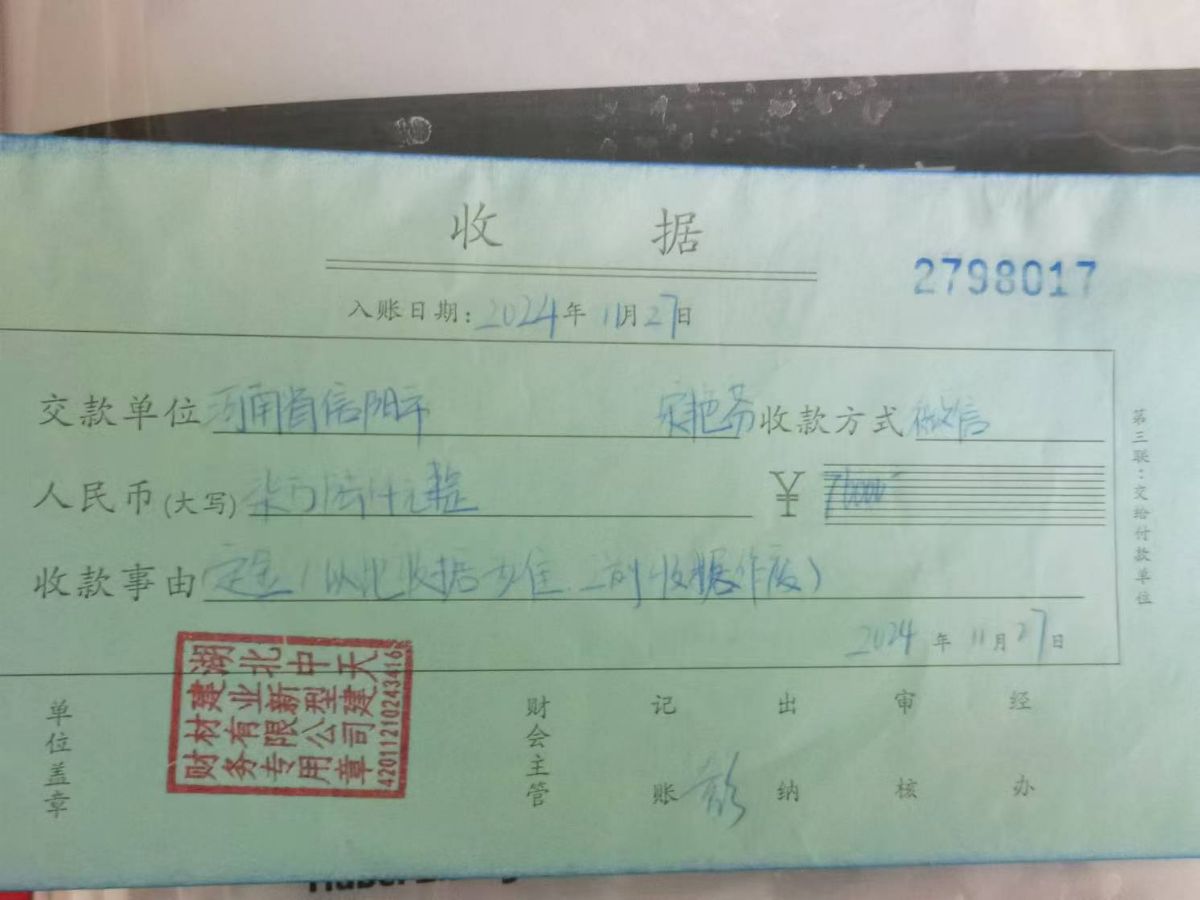 收 据
2798017
入账日期：2024年11月27日
交款单位 河南省信阳市 收款方式 微信
人民币(大写) 柒万陆仟元整 ¥ 76000
收款事由 定金(以此收据为准 之前收据作废)
2024年11月27日
第三联：交给付款单位
湖北中天
建业新型建
材有限公司
财务专用章
4201121024341
单位盖章 财会主管 记账 彭 出纳 审核 经办